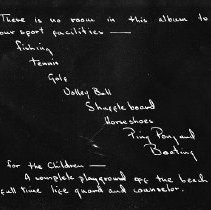 There is no room in this album to
our sport facilities —
Fishing
Tennis
Golf
Volley Ball
Shuffleboard
Horseshoes
Ping Pong and
Boating
For the Children —
A complete playground off the beach
full time life guard and counselor.